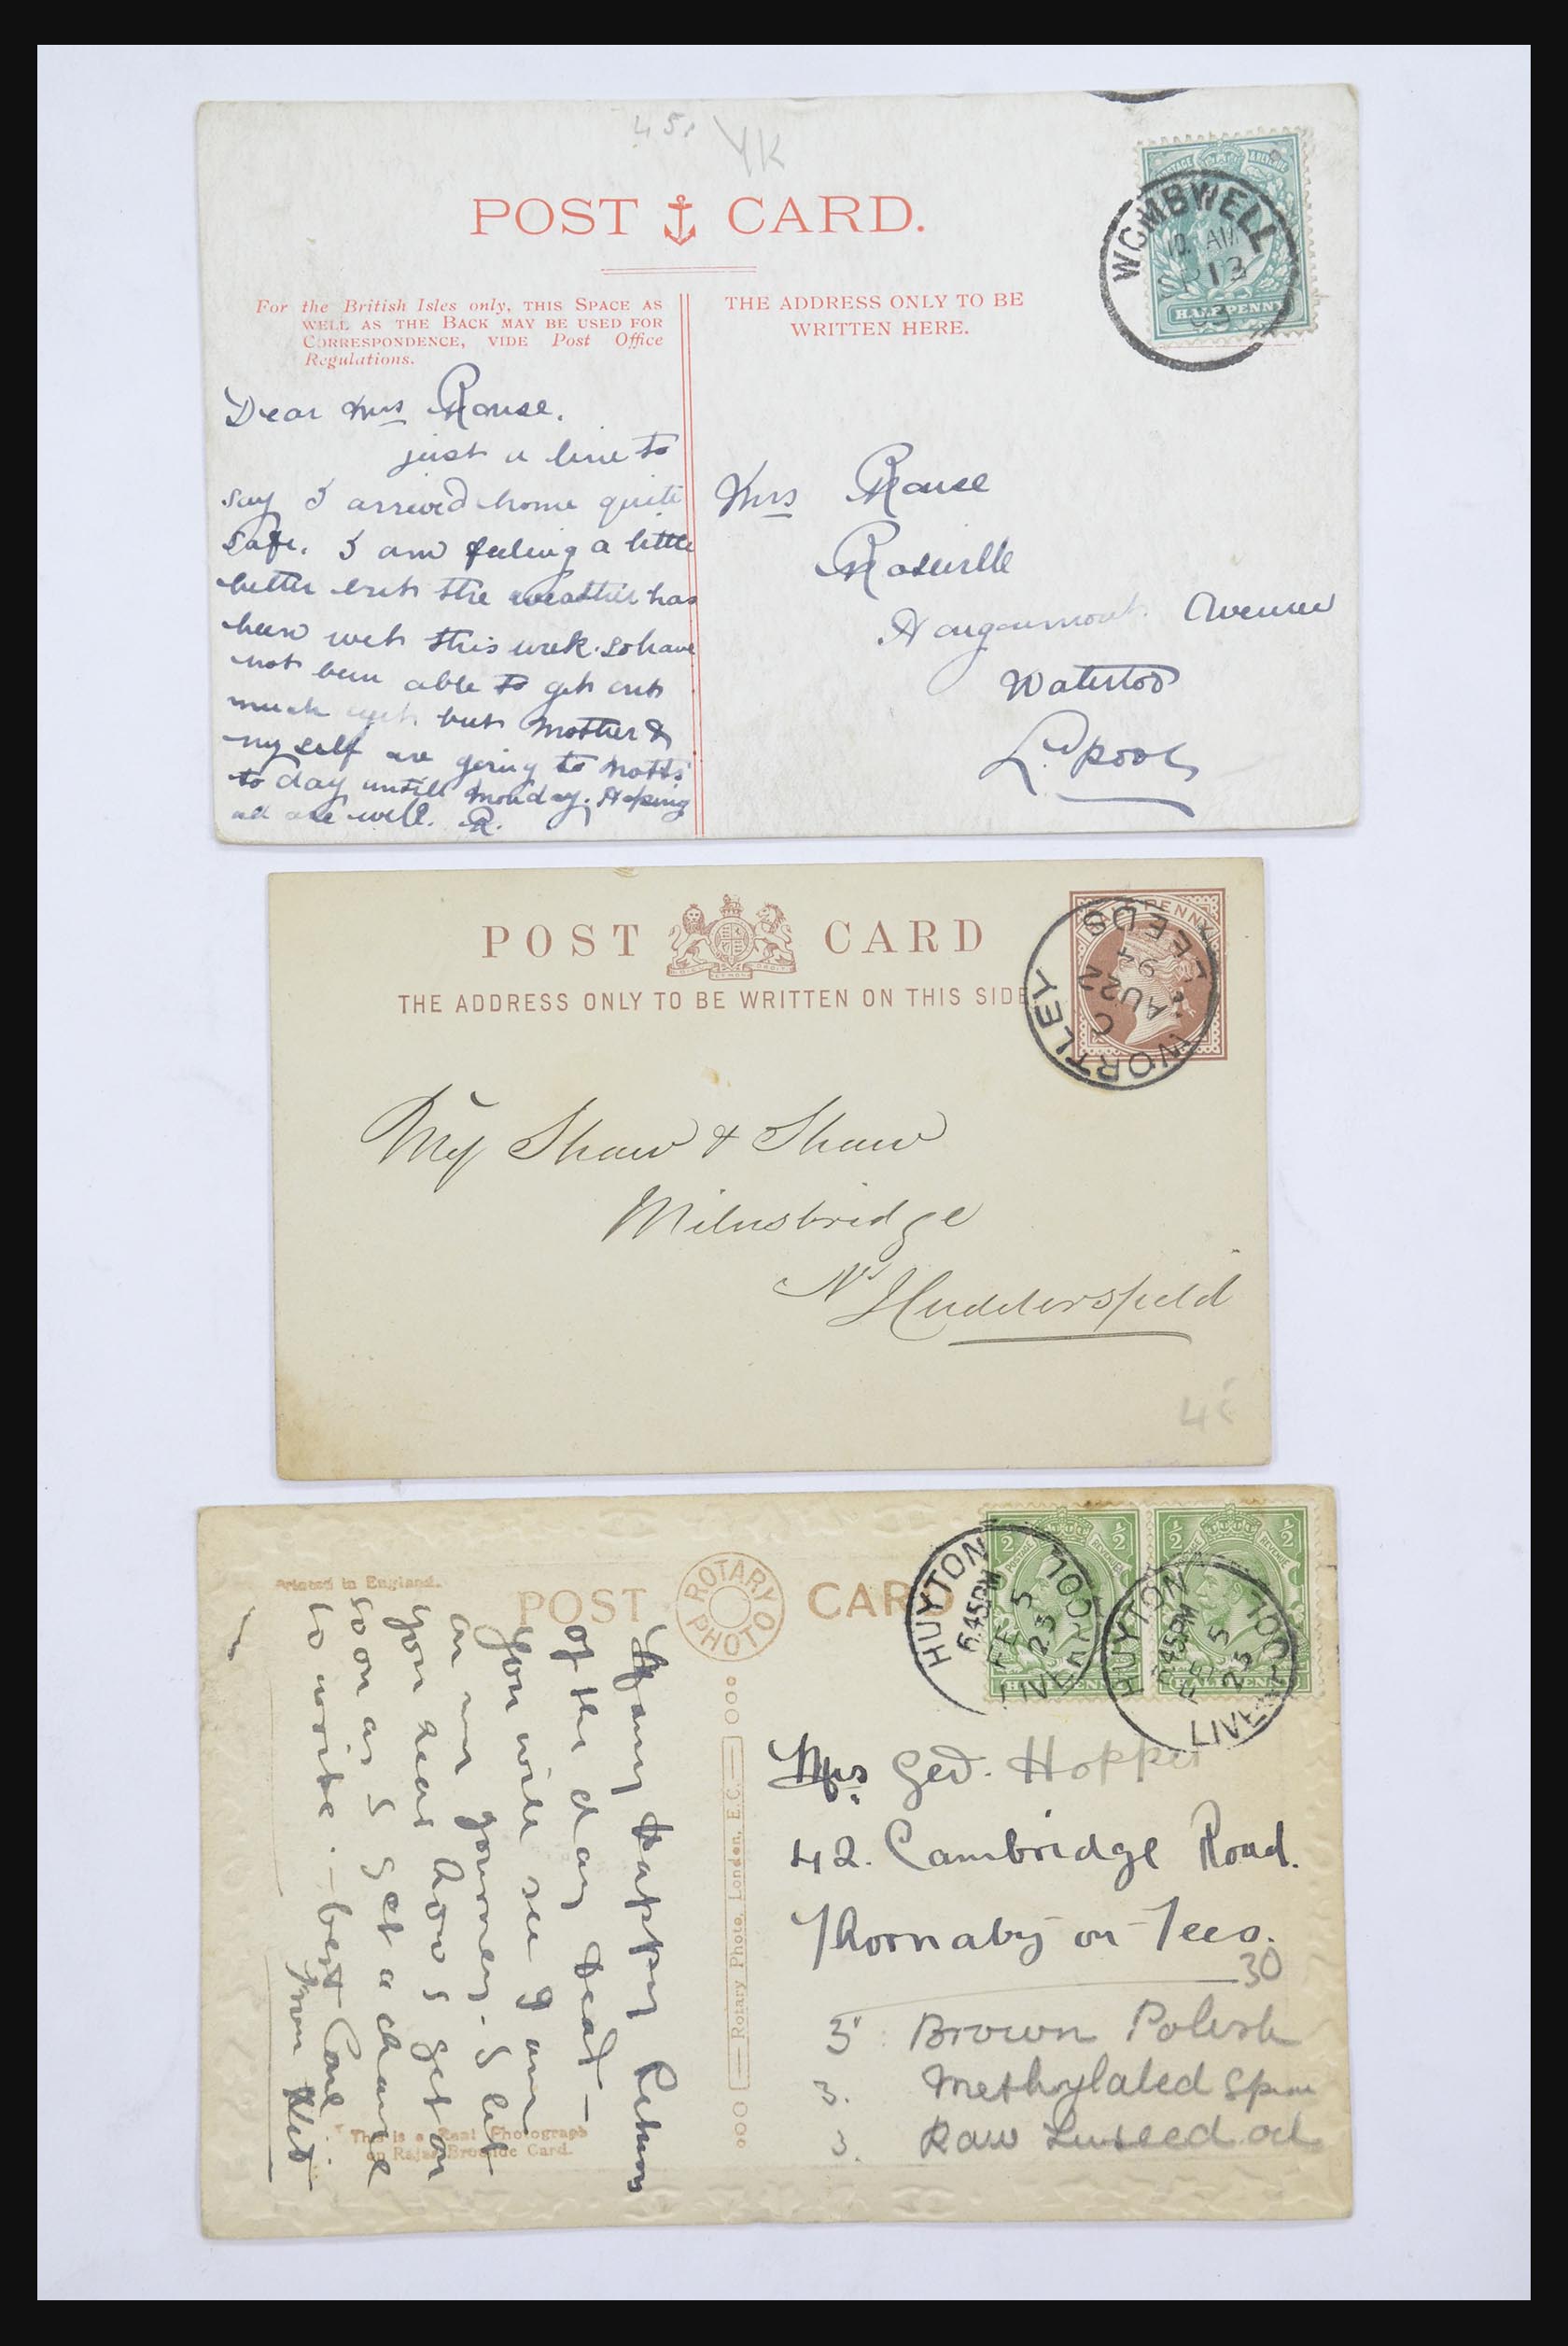 45. YK
POST CARD.
For the British Isles only, THIS SPACE AS
WELL AS THE BACK MAY BE USED FOR
CORRESPONDENCE, VIDE Post Office
Regulations.
THE ADDRESS ONLY TO BE
WRITTEN HERE.
WOMBWELL
13
HALFPENNY
Dear Mrs Rouse.
just a line to
say I arrived home quite
safe. I am feeling a little
better but the weather has
been wet this week. So have
not been able to get out
much yet but Mother &
myself are going to Notts
to day untill Monday. Hoping
all are well. R.
Mrs Rouse
Roseville
Avenue
Waterloo
L.pool
POST CARD
THE ADDRESS ONLY TO BE WRITTEN ON THIS SIDE
HALFPENNY
WORTLEY LEEDS
C
AU 22
94
Shaw & Shaw
Milnsbridge
Nr Huddersfield
Printed in England.
POST CARD
ROTARY PHOTO
POSTAGE REVENUE
HALFPENNY
HUYTON LIVERPOOL
6.45PM
FE 5
25
HUYTON LIVERPOOL
6.45PM
FE 5
25
Many Happy Returns
of the day Dear —
You will see I am
on my journey. I let
you hear how I get on
soon as I get a chance
to write. — best love
from
This is a Real Photograph
on Rajar Bromide Card.
Rotary Photo, London, E.C.
Mrs Geo. Hopper
42. Cambridge Road.
Thornaby-on-Tees.
30
3 Brown Polish
3. Methylated
3. Raw Linseed oil